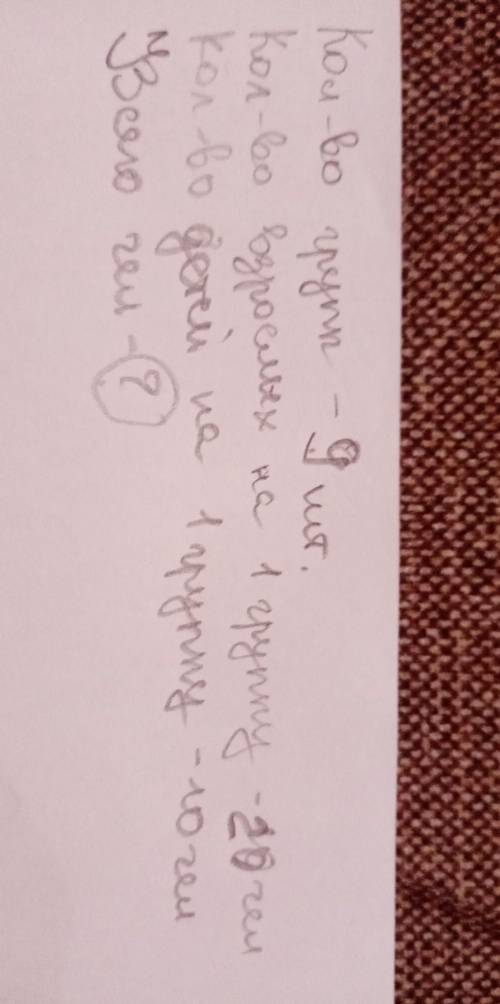 Кол-во групп - 9 шт.
Кол-во взрослых на 1 группу - 20 чел
Кол-во детей на 1 группу - 10 чел
Всего чел - ?